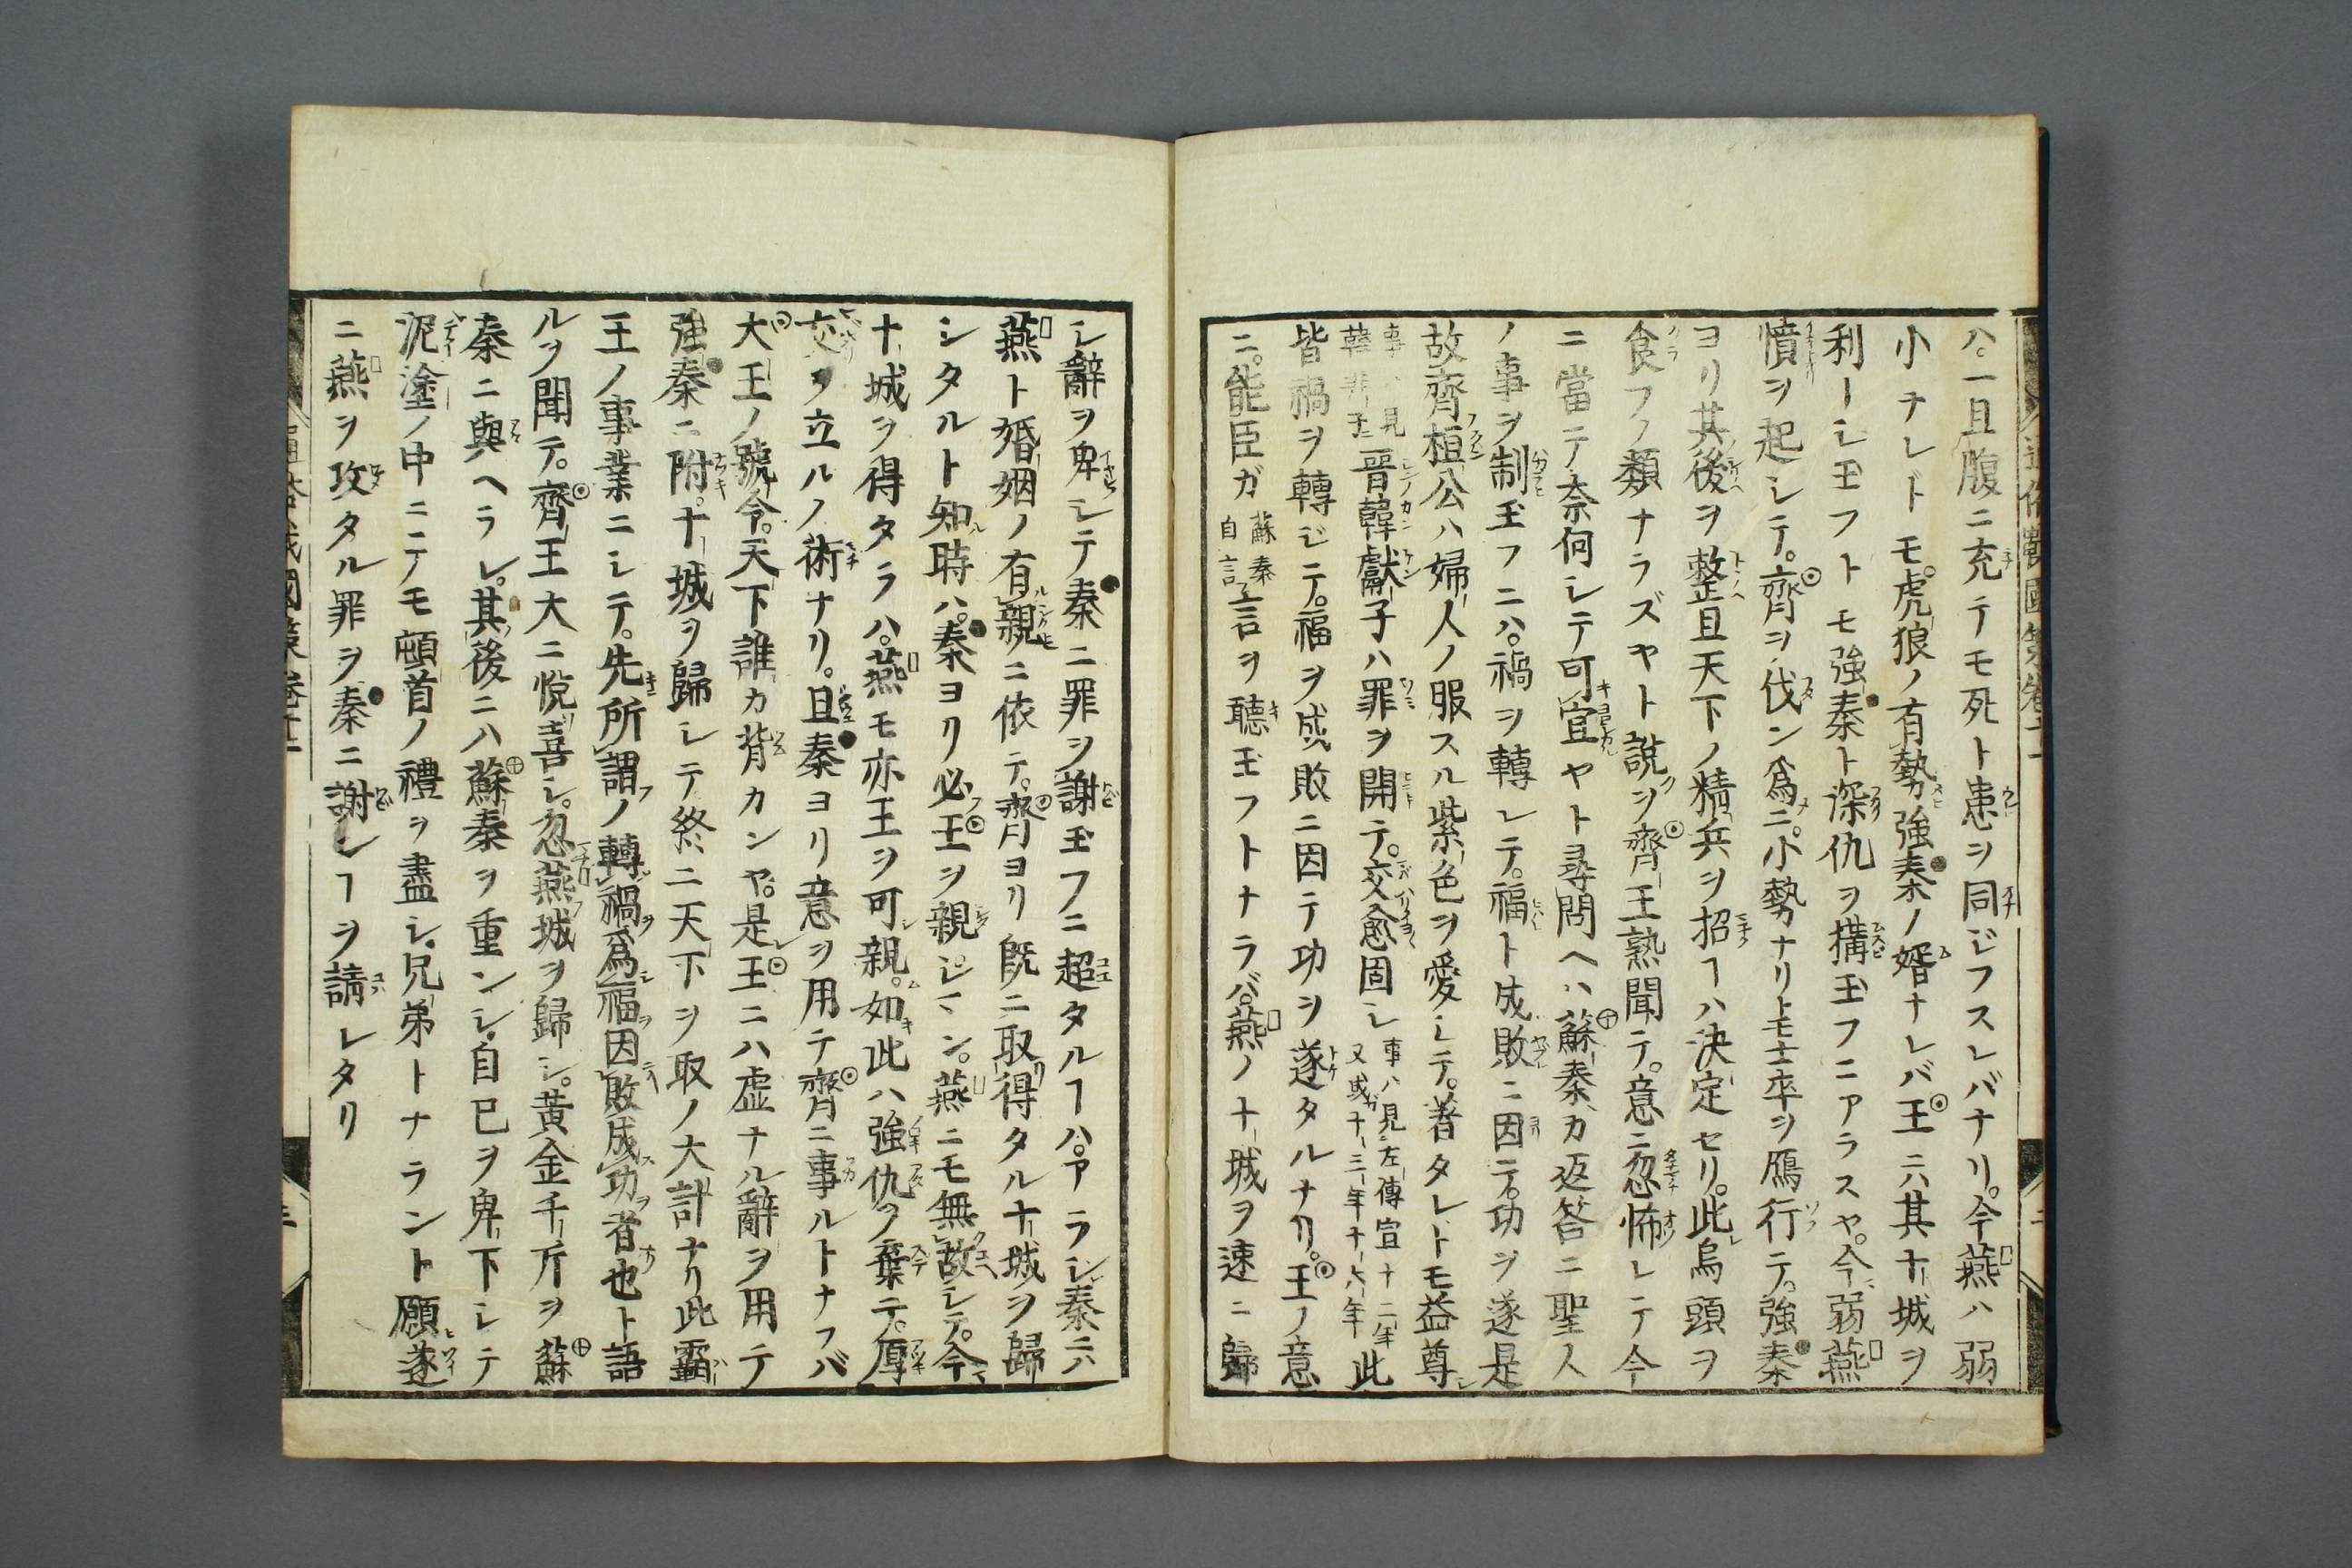 ハ。一旦腹ニ充テモ死ト患ヲ同ジフスレバナリ。今燕ハ弱
小ナレドモ。虎狼ノ有勢強秦ノ婿ナレバ王ニハ其十城ヲ
利トシ玉フトモ強秦ト深仇ヲ搆玉フニアラスヤ。今弱燕
憤ヲ起シテ。齊ヲ伐ン爲ニ。小勢ナリトモ士卒ヲ鴈行テ。強秦
ヨリ其後ヲ整且天下ノ精兵ヲ招ヿハ決定セリ。此烏頭ヲ
食フノ類ナラズヤト說ヲ齊王熟聞テ。意ニ忽怖レテ今
ニ當テ奈何シテ可宜ヤト尋問ヘハ蘇秦カ返答ニ聖人
ノ事ヲ制玉フニハ。禍ヲ轉シテ。福ト成敗ニ因テ。功ヲ遂是
故齊桓公ハ婦人ノ服スル紫色ヲ愛シテ。着タレドモ益尊
事ハ見韓非子ニ晋韓獻子ハ罪ヲ開テ。交愈固シ事ハ見左傳宣十二年又成十三年十六年此
皆禍ヲ轉ジテ。福ヲ成敗ニ因テ功ヲ遂タルナリ。王ノ意
ニ。能臣ガ蘇秦自言言ヲ聽玉フトナラバ。燕ノ十城ヲ速ニ歸
シ辭ヲ卑シテ秦ニ罪ヲ謝玉フニ超タルヿハ。アラシ秦ニハ
燕ト婚姻ノ有親ニ依テ。齊ヨリ旣ニ取得タル十城ヲ歸
シタルト知時ハ。秦ヨリ必王ヲ親シマン。燕ニモ無故シテ。今
十城ヲ得タラハ。燕モ亦王ヲ可親。如此ハ強仇ヲ棄テ。厚
交ヲ立ルノ術ナリ。且秦ヨリ意ヲ用テ齊ニ事ルトナフバ
大王ノ號令。天下誰カ背カンヤ。是王ニハ虛ナル辭ヲ用テ
強秦ニ附。十城ヲ歸シテ終ニ天下ヲ取ノ大計ナリ此霸
王ノ事業ニシテ。先所謂ノ轉禍爲福因敗成功者也ト語
ルヲ聞テ。齊王大ニ悅喜シ。忽燕城ヲ歸シ。黃金千斤ヲ蘇
秦ニ與ヘラレ。其後ニハ蘇秦ヲ重ンシ。自已ヲ卑下シテ
泥塗ノ中ニテモ頓首ノ禮ヲ盡シ。兄弟トナラント願遂
ニ燕ヲ攻タル罪ヲ秦ニ謝シヿヲ請レタリ